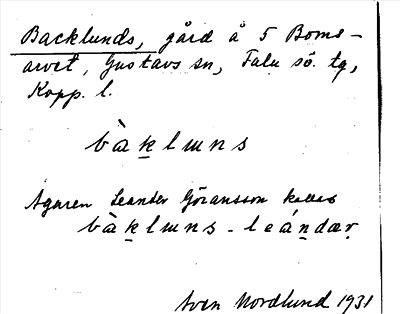 Backlunds, gård å 5 Boms-
arvet, Gustavs sn, Falu sö. tg,
Kopp. l.
bàk̲lɯns
Ägaren Leander Göransson kallas
bàk̲lɯns - leán̲dær̤
Sven Nordlund 1931